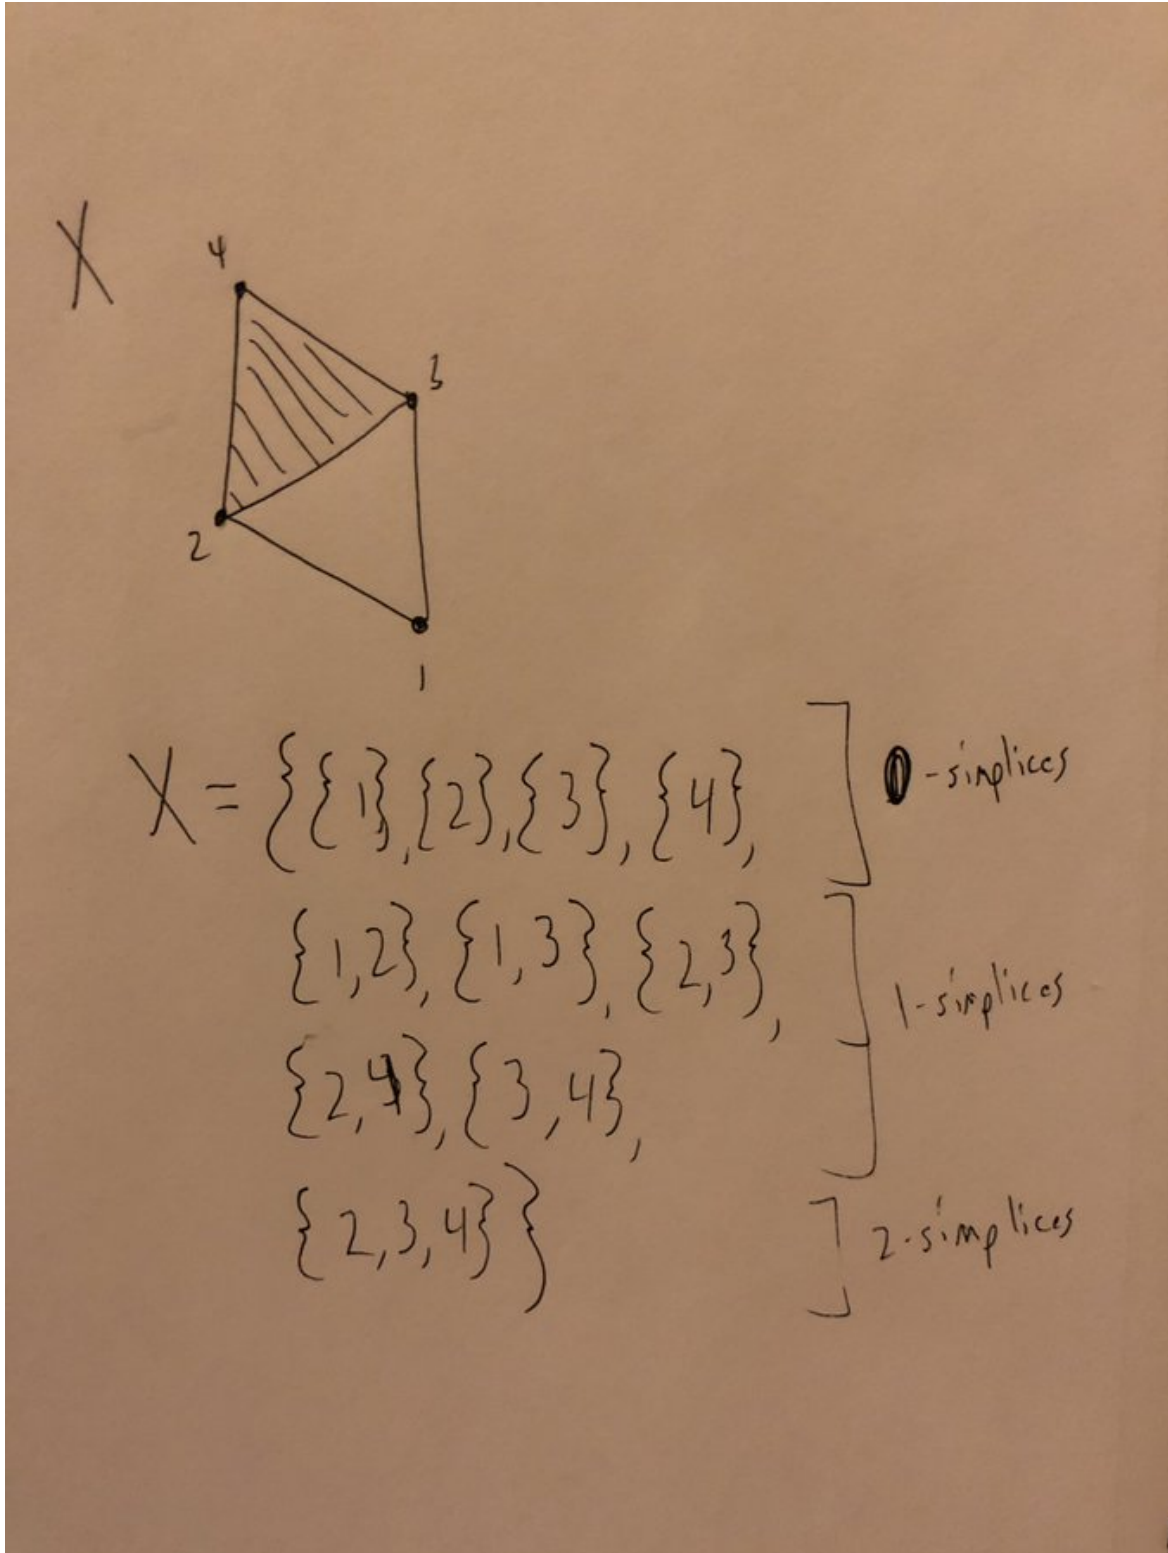 X
4
3
2
1
X = {{1}, {2}, {3}, {4}, ] 0-simplices
{1,2}, {1,3}, {2,3}, ] 1-simplices
{2,4}, {3,4},
{2,3,4}} ] 2-simplices